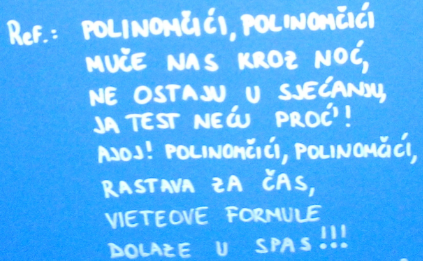 Ref.: POLINOMČIĆI, POLINOMČIĆI
MUČE NAS KROZ NOĆ,
NE OSTAJU U SJEĆANJU,
JA TEST NEĆU PROĆ'!
AJOJ! POLINOMČIĆI, POLINOMČIĆI,
RASTAVA ZA ČAS,
VIETEOVE FORMULE
DOLAZE U SPAS!!!